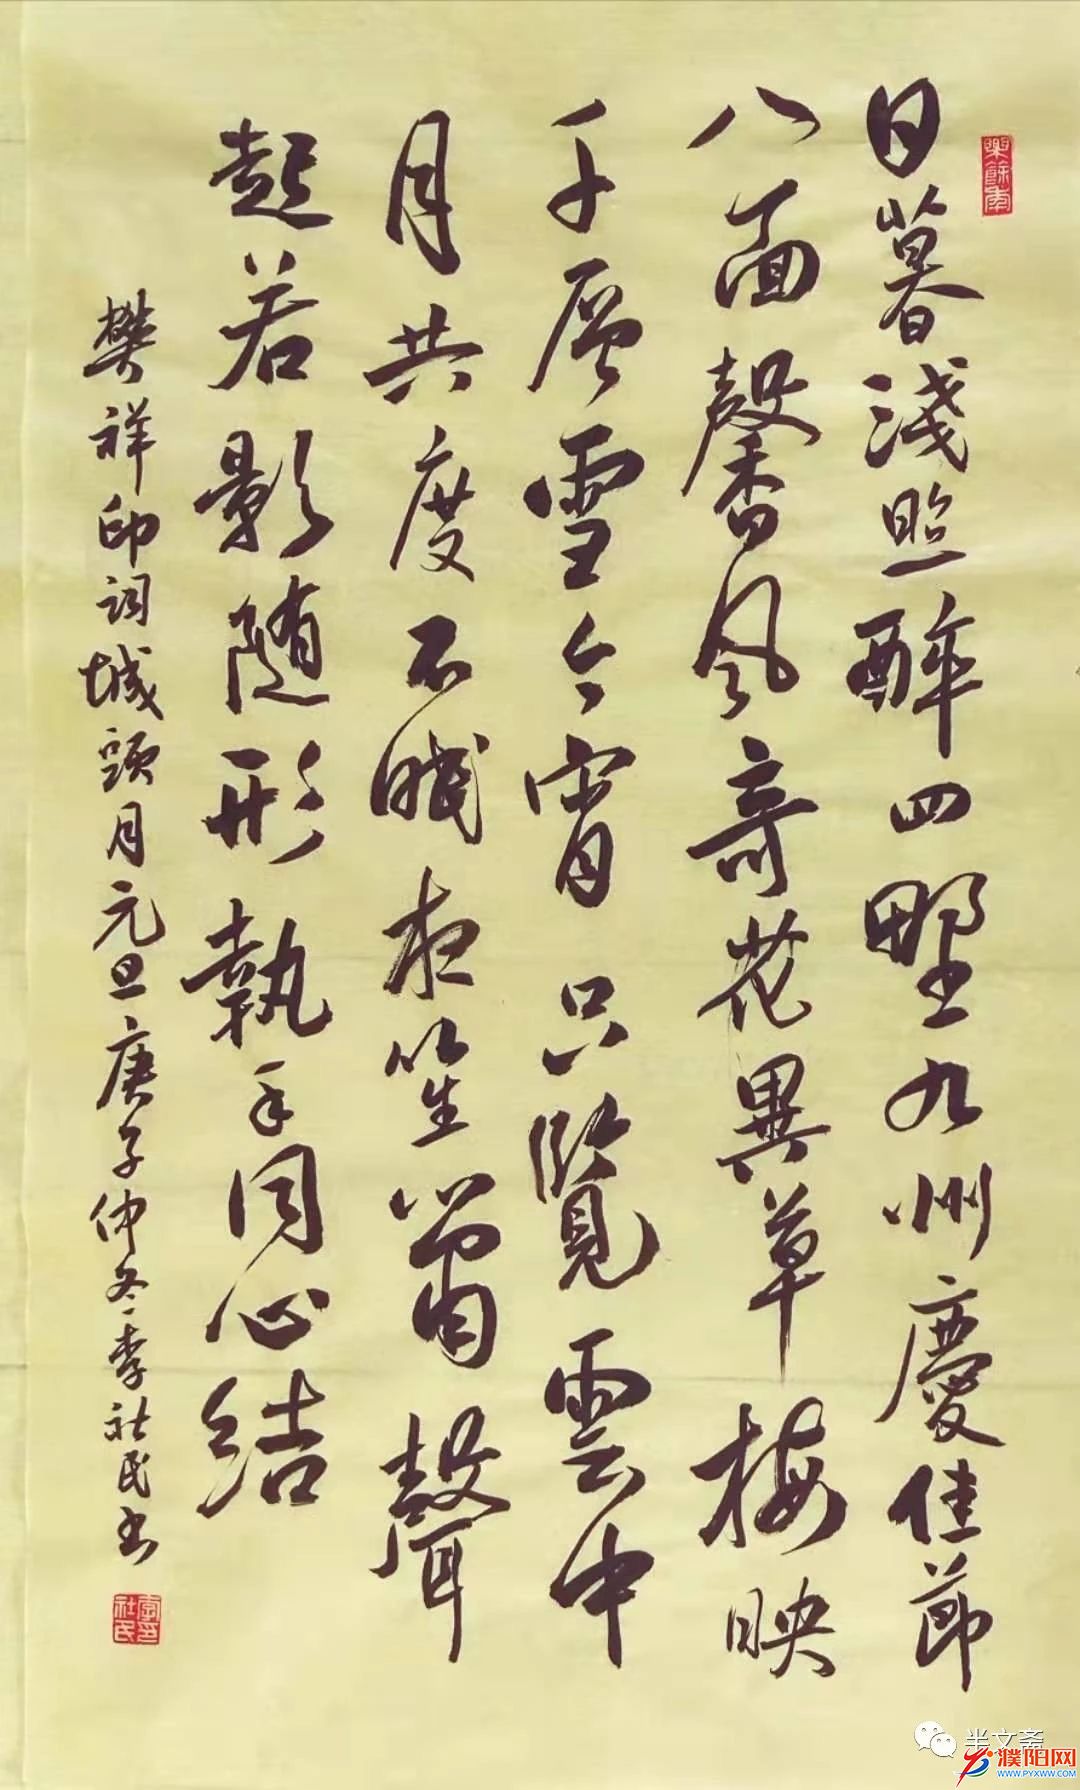 樂餘年
日暮淺照醉四野九州慶佳節
八面馨風奇花異草梅映
千層雪今宵只覽雲中
月共度不眠夜笙簫聲
起若影随形執手同心結
樊祥印詞城頭月元旦庚子仲冬李社民书
李社民印
半文斋
濮阳网
WWW.PYXWW.COM